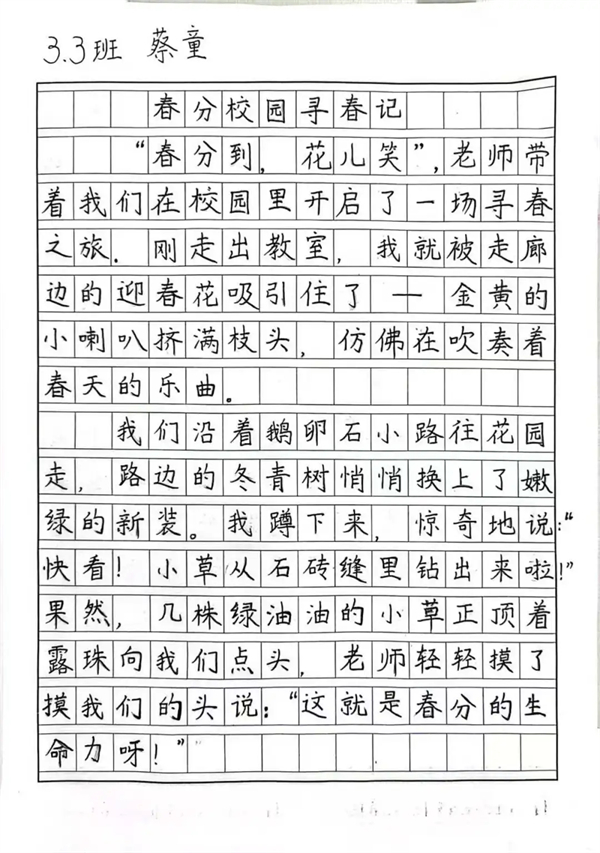 3.3班 蔡童
春分校园寻春记
“春分到，花儿笑”，老师带
着我们在校园里开启了一场寻春
之旅．刚走出教室，我就被走廊
边的迎春花吸引住了—金黄的
小喇叭挤满枝头，仿佛在吹奏着
春天的乐曲。
我们沿着鹅卵石小路往花园
走，路边的冬青树悄悄换上了嫩
绿的新装。我蹲下来，惊奇地说：“
快看！小草从石砖缝里钻出来啦！”
果然，几株绿油油的小草正顶着
露珠向我们点头，老师轻轻摸了
摸我们的头说：“这就是春分的生
命力呀！”